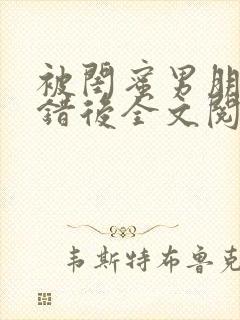 被閨蜜男朋
錯後全文閱
韦斯特布鲁克